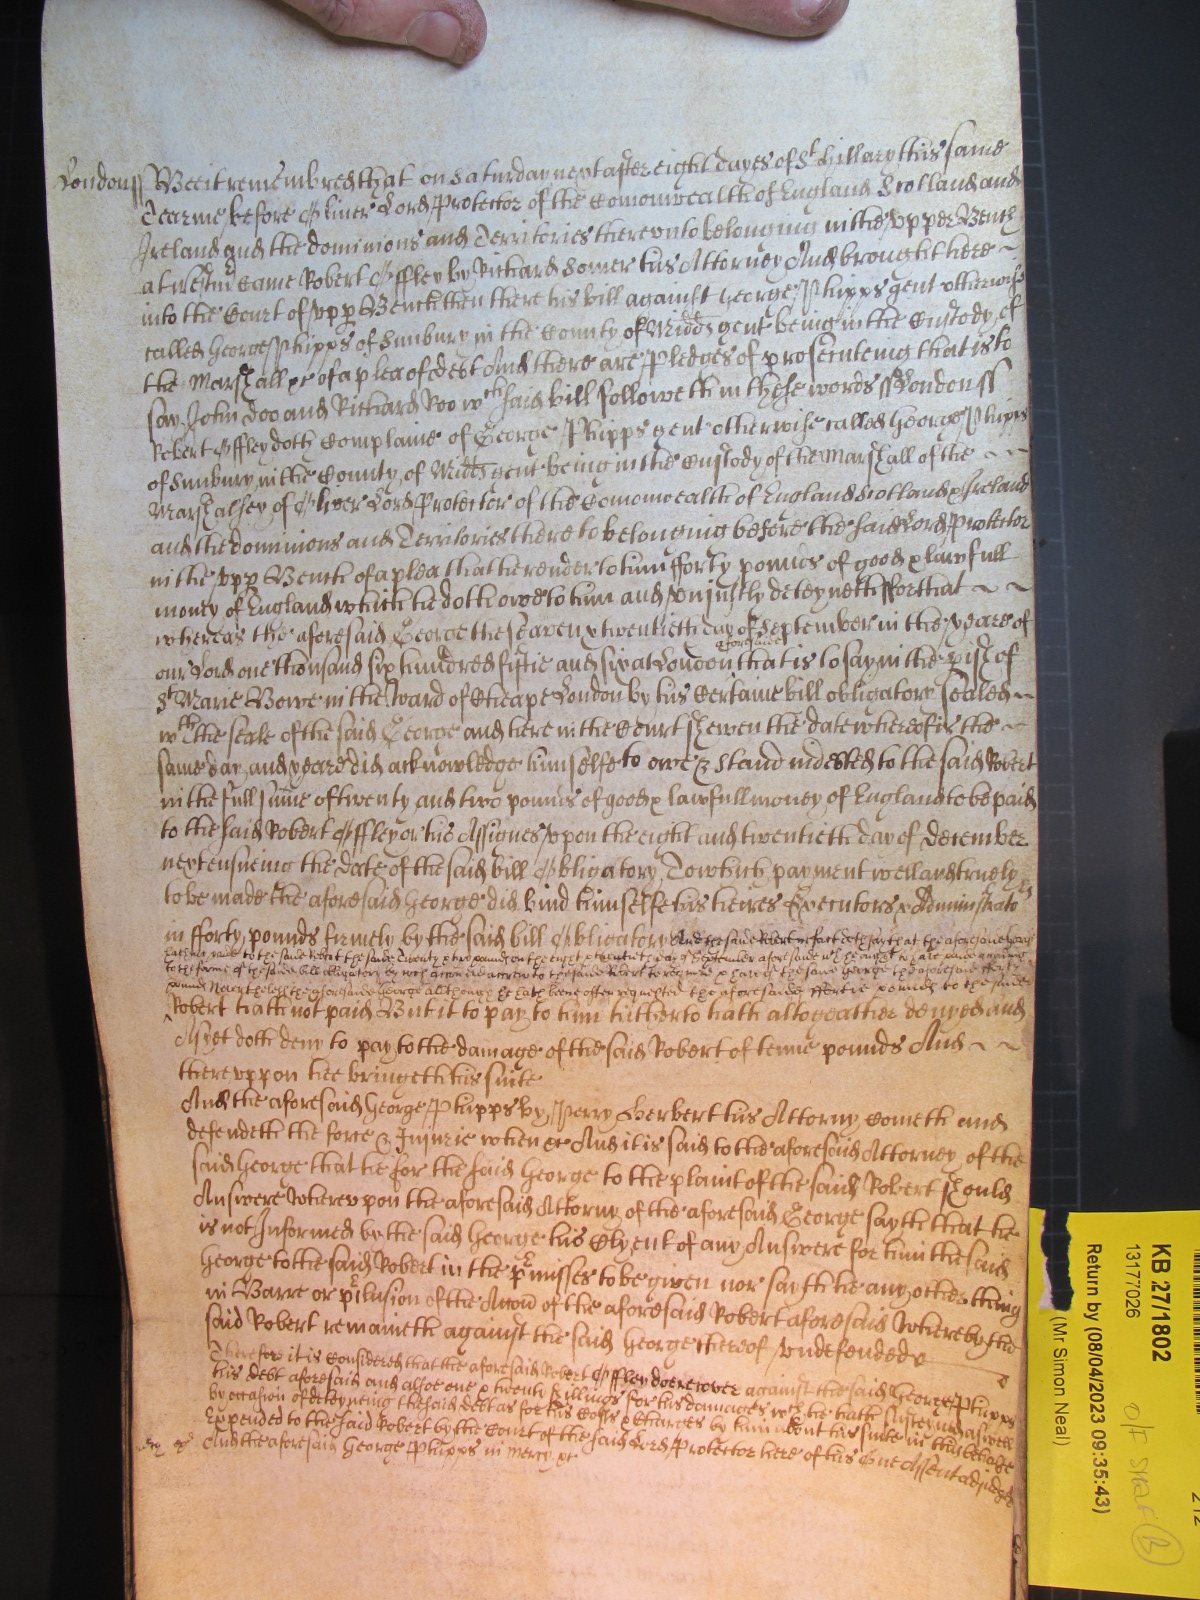 London ss Bee it remembred that on Saturday next after eight dayes of St Hillary this same
Tearme before Oliver Lord Protector of the Comonwealth of England Scotland and
Ireland and the dominions and Territories thereunto belonging in the upper Bench
at Westm came Robert Offley by Richard Somer his Attorney And brought here
into the Court of upp Bench then there his bill against George Phipps gent otherwise
called George Phipps of Sunbury in the County of Midds gent being in the Custody of
the Marshall &c of a plea of debt And there are Pledges of prosecuteing that is to
say John Doo and Richard Roo wch said bill followeth in these words ss London ss
Robert Offley doth Complaine of George Phipps gent otherwise called George Phipps
of Sunbury in the County of Midds gent being in the Custody of the Marshall of the
Marshalsey of Oliver Lord Protector of the Comonwealth of England Scotland & Ireland
and the dominions and Territories there to belonging before the said Lord Protector
in the upp Bench of a plea that he render to him fforty pounds of good & lawfull
money of England which he doth owe to him and unjustly deteyneth ffor that
whereas the aforesaid George the seaven & twentieth day of September in the yeare of
our Lord one thousand six hundred fiftie and six at London aforesaid that is to say in the pish of
St Marie Bowe in the Ward of Cheape London by his Certaine bill obligatory sealed
wth the seale of the said George and here in the Court shewen the date whereof is the
same day and yeare did acknowledge himselfe to owe & stand indebted to the said Robert
in the full sume of twenty and two pounds of good & lawfull money of England to be paid
to the said Robert Offley or his Assignes upon the eight and twentieth day of december
next ensueing the date of the said bill Obligatory To which payment well and truely
to be made the aforesaid George did bind himselfe his heires Executors & Administrators
in fforty pounds firmely by the said bill Obligatory And the said Robert in fact doth say that the aforesaid George
hath not paid to the said Robert the said Twenty & two pounds on the eight & twentieth day of September aforesaid wch he ought to have paid according
to the forme of the said bill obligatory by wch action did accrew to the said Robert to require & have of the said George the aforesaid fforty
pounds Neverthelesse the aforesaid George although he hath beene often requested the aforesaid ffortie pounds to the said
Robert hath not paid But it to pay to him hitherto hath altogeather denyed and
As yet doth deny to pay to the damage of the said Robert of tenne pounds And
thereuppon hee bringeth his suite
And the aforesaid George Phipps by Perry Herbert his Attorny Cometh and
defendeth the force & Injurie when &c And it is said to the aforesaid Attorney of the
said George that he for the said George to the plaint of the said Robert should
Answere Whereupon the aforesaid Attorny of the aforesaid George sayth that he
is not Informed by the said George his Clyent of any Answere for him the said
George to the said Robert in the pmisses to be given nor sayth he any other thing
in Barre or pclusion of the Accon of the aforesaid Robert aforesaid Whereby the
said Robert remaineth against the said George thereof undefended
Therefore it is Considered that the aforesaid Robert Offley doe recover against the said George Phipps
his debt aforesaid and alsoe one & twenty shillings for his damages wch he hath susteyned aswell
by occasion of deteyneing the said debt as for his Costs & Charges by him about his suite in this behalfe
Expended to the said Robert by the Court of the said Lord Protector here of his One Assent adjudged
mcy And the aforesaid George Phipps in mercy &c
KB 27/1802
13177026
Return by (08/04/2023 09:35:43)
(Mr Simon Neal)